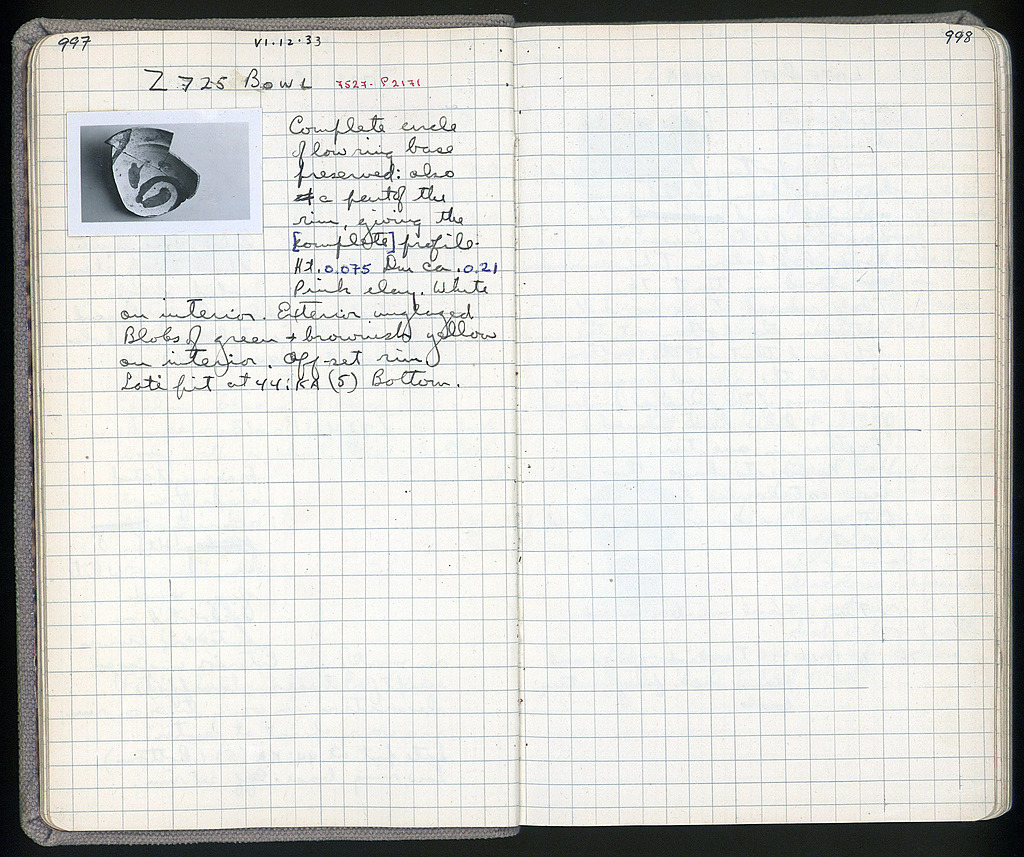 997
VI.12.33
Z 725 BOWL 7527 - P 2171
Complete circle
of low ring base
preserved: also
a part of the
rim, giving the
[complete] profile.
Ht. 0.075 Dm ca. 0.21
Pink clay. White
on interior. Exterior unglazed
Blobs of green + brownish yellow
on interior. Off-set rim.
Late pit at 44:KA (5) Bottom.
998